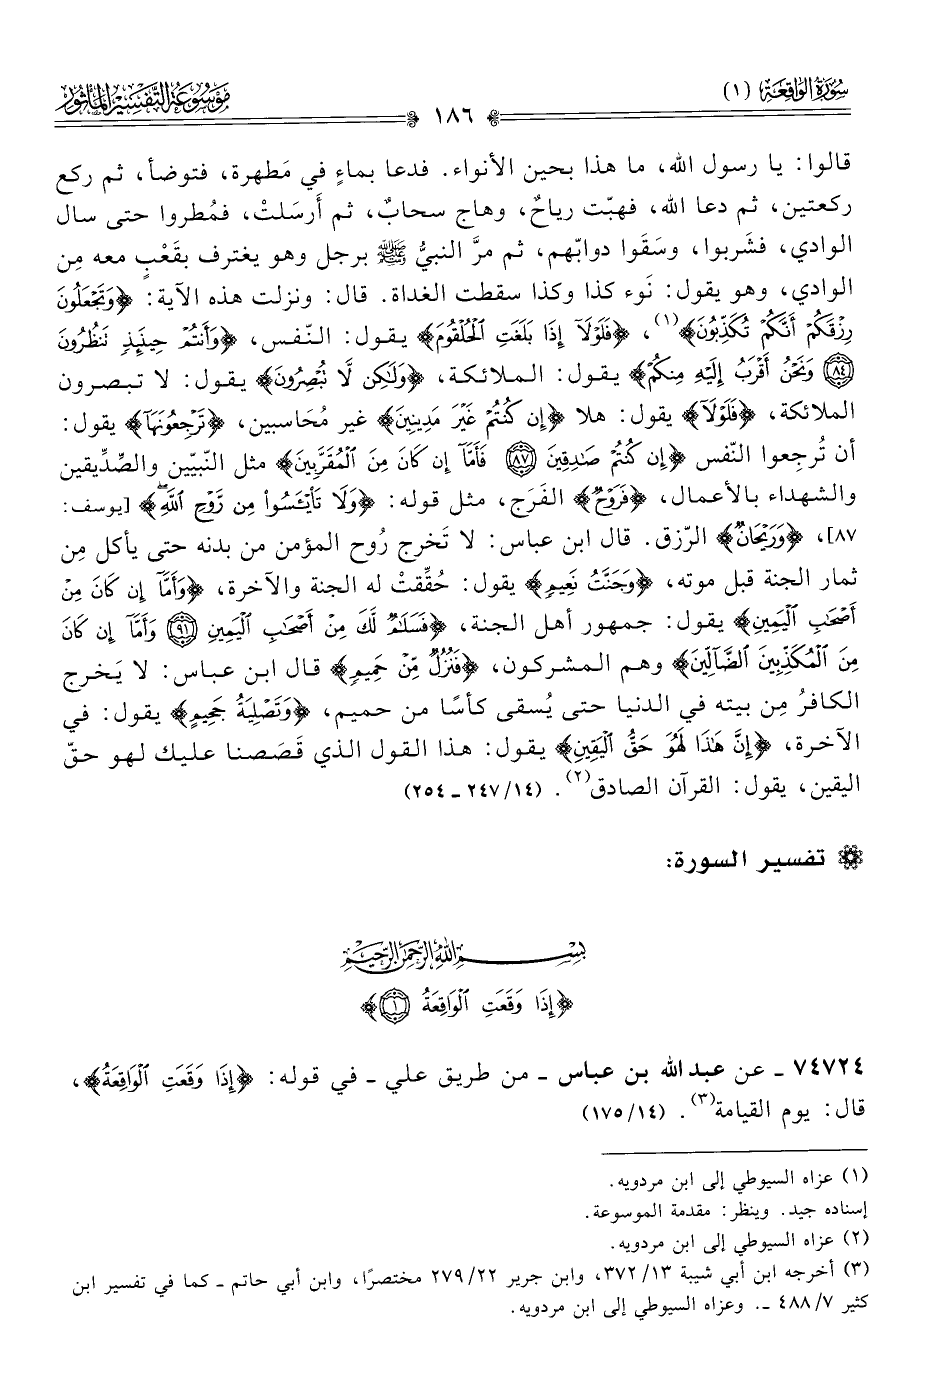 سُورَةُ الوَاقِعَةِ (١)
١٨٦
مَوْسُوعَةُ التَّفْسِيرِ المَأْثُورِ
قالوا: يا رسول الله، ما هذا بحين الأنواء. فدعا بماءٍ في مَطهرة، فتوضأ، ثم ركع
ركعتين، ثم دعا الله، فهبّت رياحٌ، وهاج سحابٌ، ثم أَرسَلتْ، فمُطروا حتى سال
الوادي، فشَربوا، وسَقَوا دوابّهم، ثم مرَّ النبيُّ ﷺ برجل وهو يغترف بقَعْبٍ معه مِن
الوادي، وهو يقول: نَوء كذا وكذا سقطت الغداة. قال: ونزلت هذه الآية: ﴿وَتَجْعَلُونَ
رِزْقَكُمْ أَنَّكُمْ تُكَذِّبُونَ﴾(١)، ﴿فَلَوْلَآ إِذَا بَلَغَتِ ٱلْحُلْقُومَ﴾ يقول: النّفس، ﴿وَأَنتُمْ حِينَئِذٍ تَنظُرُونَ
(٨٤) وَنَحْنُ أَقْرَبُ إِلَيْهِ مِنكُمْ﴾ يقول: الملائكة، ﴿وَلَٰكِن لَّا تُبْصِرُونَ﴾ يقول: لا تبصرون
الملائكة، ﴿فَلَوْلَآ﴾ يقول: هلا ﴿إِن كُنتُمْ غَيْرَ مَدِينِينَ﴾ غير مُحَاسبين، ﴿تَرْجِعُونَهَآ﴾ يقول:
أن تُرجعوا النّفس ﴿إِن كُنتُمْ صَٰدِقِينَ (٨٧) فَأَمَّآ إِن كَانَ مِنَ ٱلْمُقَرَّبِينَ﴾ مثل النبيّين والصِّدِّيقين
والشهداء بالأعمال، ﴿فَرَوْحٌ﴾ الفَرَج، مثل قوله: ﴿وَلَا تَا۟يْـَٔسُوا۟ مِن رَّوْحِ ٱللَّهِ﴾ [يوسف:
٨٧]، ﴿وَرَيْحَانٌ﴾ الرّزق. قال ابن عباس: لا تَخرج رُوح المؤمن من بدنه حتى يأكل مِن
ثمار الجنة قبل موته، ﴿وَجَنَّتُ نَعِيمٍ﴾ يقول: حُقِّقتْ له الجنة والآخرة، ﴿وَأَمَّآ إِن كَانَ مِنْ
أَصْحَٰبِ ٱلْيَمِينِ﴾ يقول: جمهور أهل الجنة، ﴿فَسَلَٰمٌ لَّكَ مِنْ أَصْحَٰبِ ٱلْيَمِينِ (٩١) وَأَمَّآ إِن كَانَ
مِنَ ٱلْمُكَذِّبِينَ ٱلضَّآلِّينَ﴾ وهم المشركون، ﴿فَنُزُلٌ مِّنْ حَمِيمٍ﴾ قال ابن عباس: لا يَخرج
الكافرُ مِن بيته في الدنيا حتى يُسقى كأسًا من حميم، ﴿وَتَصْلِيَةُ جَحِيمٍ﴾ يقول: في
الآخرة، ﴿إِنَّ هَٰذَا لَهُوَ حَقُّ ٱلْيَقِينِ﴾ يقول: هذا القول الذي قَصَصنا عليك لهو حقّ
اليقين، يقول: القرآن الصادق(٢). (١٤/ ٢٤٧ ـ ٢٥٤)
تفسير السورة:
بِسْمِ ٱللَّهِ ٱلرَّحْمَٰنِ ٱلرَّحِيمِ
﴿إِذَا وَقَعَتِ ٱلْوَاقِعَةُ (١)﴾
٧٤٧٢٤ ـ عن عبد الله بن عباس ـ من طريق علي ـ في قوله: ﴿إِذَا وَقَعَتِ ٱلْوَاقِعَةُ﴾،
قال: يوم القيامة(٣). (١٤/ ١٧٥)
(١) عزاه السيوطي إلى ابن مردويه.
إسناده جيد. وينظر: مقدمة الموسوعة.
(٢) عزاه السيوطي إلى ابن مردويه.
(٣) أخرجه ابن أبي شيبة ١٣/ ٣٧٢، وابن جرير ٢٢/ ٢٧٩ مختصرًا، وابن أبي حاتم ـ كما في تفسير ابن
كثير ٧/ ٤٨٨ ـ. وعزاه السيوطي إلى ابن مردويه.